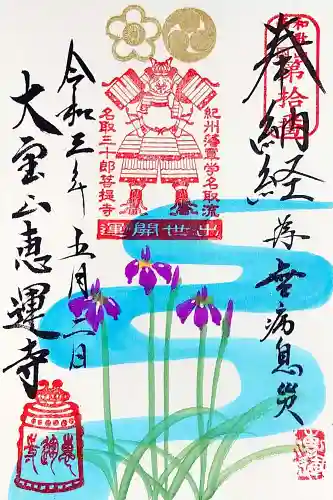 奉納経
為無病息災
和歌
第十番
紀州藩軍学名取流
名取三十郎菩提寺
出世開運
令和三年五月二日
大宝山恵運寺
恵運寺